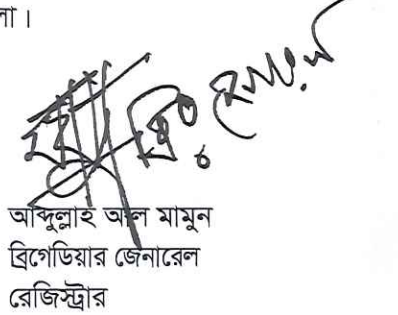 লা।
আব্দুল্লাহ আল মামুন
ব্রিগেডিয়ার জেনারেল
রেজিস্ট্রার